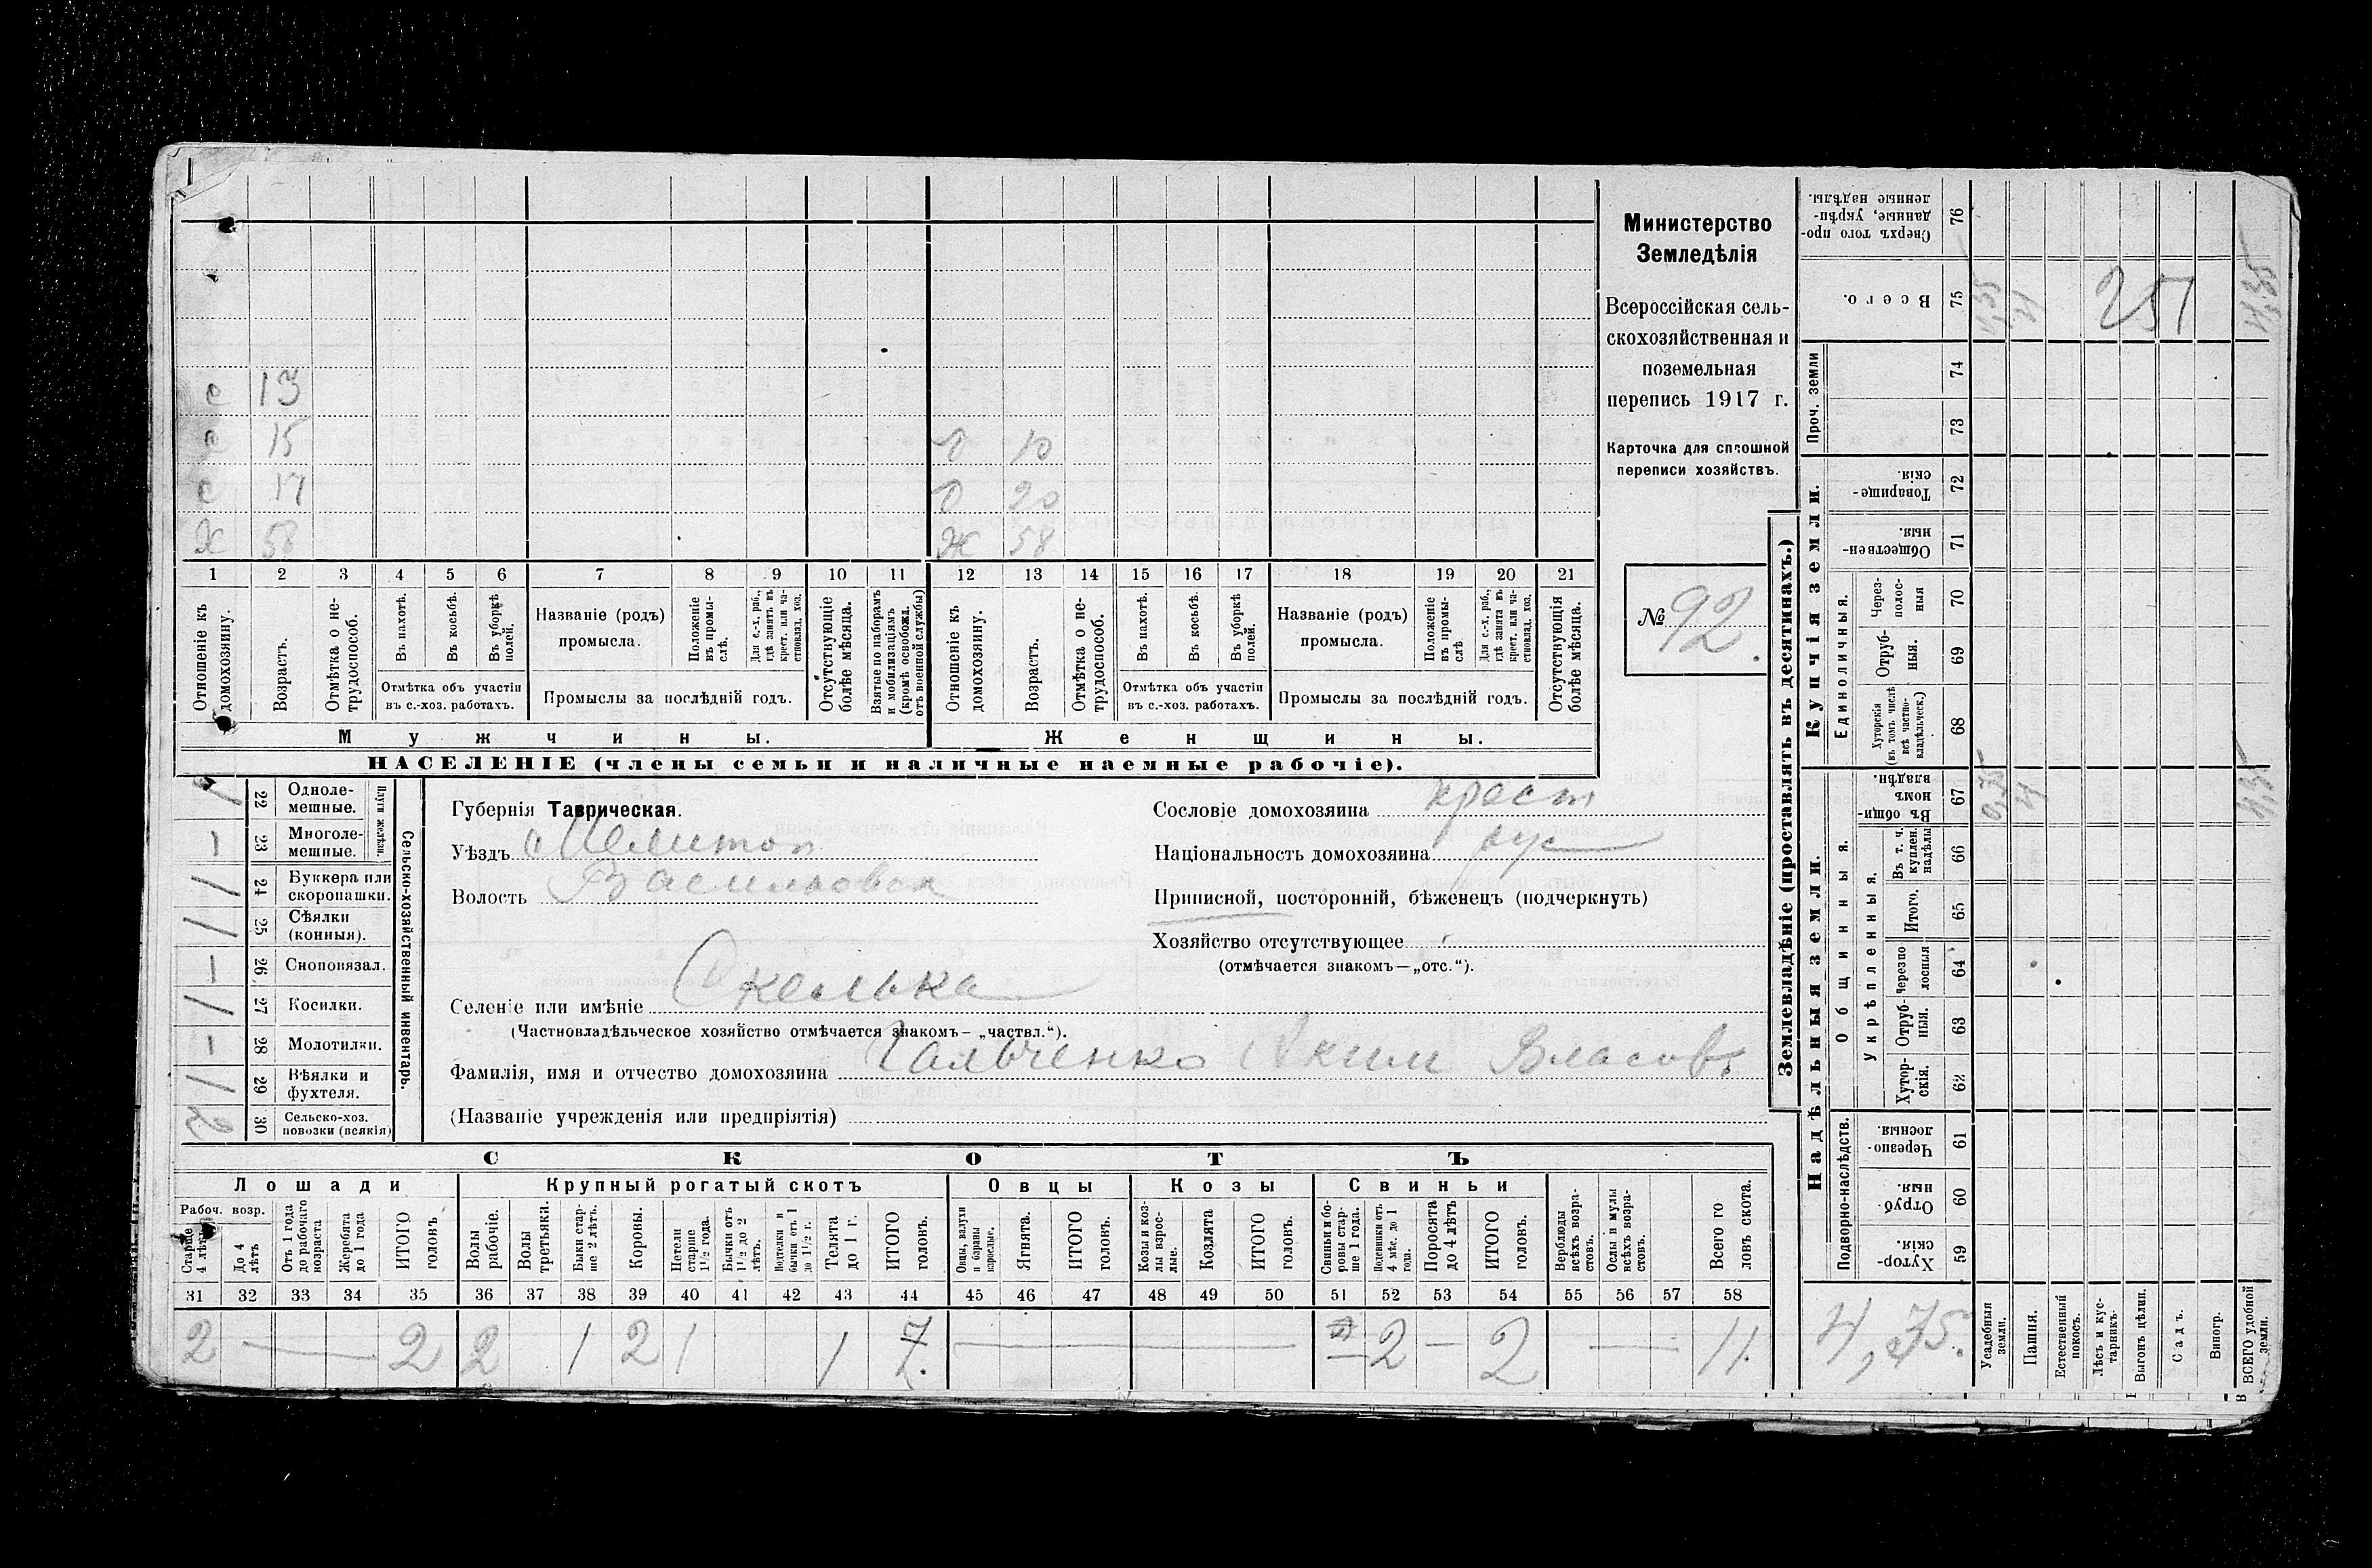 с 13
с 15 д 10
с 17 д 20
х 58 ж 58
1 2 3 4 5 6 7 8 9 10 11 12 13 14 15 16 17 18 19 20 21
Отношеніе къ домохозяину.
Возрастъ.
Отмѣтка о нетрудоспособ.
Въ пахотѣ.
Въ косьбѣ.
Въ уборкѣ полей.
Отмѣтка объ участіи въ с.-хоз. работахъ.
Названіе (родъ) промысла.
Положеніе въ промыслѣ.
Для с.-х. раб., гдѣ занятъ въ крест. или частновлад. хоз.
Промыслы за послѣдній годъ.
Отсутствующіе болѣе мѣсяца.
Взятые по наборамъ и мобилизаціямъ (кромѣ освобожд. отъ военной службы)
Отношеніе къ домохозяину.
Возрастъ.
Отмѣтка о нетрудоспособ.
Въ пахотѣ.
Въ косьбѣ.
Въ уборкѣ полей.
Отмѣтка объ участіи въ с.-хоз. работахъ.
Названіе (родъ) промысла.
Положеніе въ промыслѣ
Для с.-х. раб., гдѣ занята въ крест. или частновлад. хоз.
Промыслы за послѣдній годъ.
Отсутствующія болѣе мѣсяца.
Мужчины. Женщины.
НАСЕЛЕНІЕ (члены семьи и наличные наемные рабочіе).
Министерство
Земледѣлія
Всероссійская сель-
скохозяйственная и
поземельная
перепись 1917 г.
Карточка для сплошной
переписи хозяйствъ.
№ 92.
Сельско-хозяйственный инвентарь.
Плуги желѣзн.
22 Однолемешные. 1
23 Многолемешные. 1
24 Буккера или скоропашки. 1
25 Сѣялки (конныя). 1
26 Сноповязал. –
27 Косилки. 1
28 Молотилки. –
29 Вѣялки и фухтеля. 1
30 Сельско-хоз. повозки (всякія) 2
Губернія Таврическая.
Уѣздъ Мелитоп
Волость Васильевск
Селеніе или имѣніе Скелька
(Частновладѣльческое хозяйство отмѣчается знакомъ — „частвл.“).
Фамилія, имя и отчество домохозяина Гальченко Аким Власов.
(Названіе учрежденія или предпріятія)
Сословіе домохозяина крест
Національность домохозяина рус
Приписной, посторонній, бѣженецъ (подчеркнуть)
Хозяйство отсутствующее
(отмѣчается знакомъ—„отс.“).
СКОТЪ
Лошади Крупный рогатый скотъ Овцы Козы Свиньи
Рабоч. возр.
Старше 4 лѣтъ
До 4 лѣтъ
Отъ 1 года до рабочаго возраста
Жеребята до 1 года
ИТОГО головъ
Волы рабочіе.
Волы третьяки.
Быки старше 2 лѣтъ.
Коровы.
Нетели старше 1½ года.
Бычки отъ 1½ до 2 лѣтъ.
Подтелки и бычки отъ 1 до 1½ г.
Телята до 1 г.
ИТОГО головъ.
Овцы, валухи и бараны взрослые.
Ягнята.
ИТОГО головъ.
Козы и козлы взрослые.
Козлята
ИТОГО головъ.
Свиньи и боровы старше 1 года.
Подсвинки отъ 4 мѣс. до 1 года.
Поросята до 4 лѣтъ
ИТОГО головъ.
Верблюды всѣхъ возрастовъ.
Ослы и мулы всѣхъ возрастовъ.
Всего головъ скота.
31 32 33 34 35 36 37 38 39 40 41 42 43 44 45 46 47 48 49 50 51 52 53 54 55 56 57 58
2 — 2 2 1 2 1 1 7. — 2 – 2 — 11.
Землевладѣніе (проставлять въ десятинахъ.)
Купчія земли.
Надѣльныя земли.
Сверхъ того проданные, укрѣпленные надѣлы. 76
Всего. 75
Проч. земли 74 73
Товарищескія. 72
Общественныя. 71
Единоличныя.
Черезполосныя 70
Отрубныя. 69
Хуторскія (въ томъ числѣ всѣ частновладѣльческ.) 68
Общинныя.
Въ общинномъ владѣн. 67 0,75 4
Укрѣпленныя.
Въ т. ч. куплен. надѣлы 66
Итого. 65
Черезполосныя 64
Отрубныя. 63
Хуторскія. 62
Подворно-наслѣдств.
Черезполосныя. 61
Отрубныя. 60
Хуторскія. 59
251
4,75.
Усадебныя земли.
Пашня.
Естественный покосъ.
Лѣсъ и кустарникъ.
Выгонъ цѣлин.
Садъ.
Виногр.
ВСЕГО удобной земли.